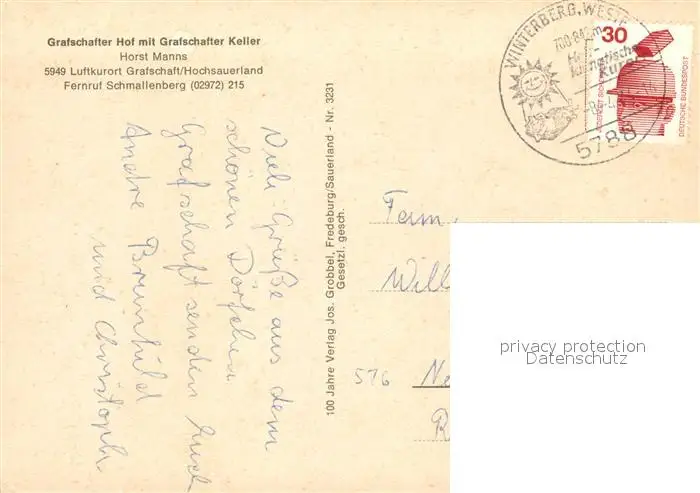 Grafschafter Hof mit Grafschafter Keller
Horst Manns
5949 Luftkurort Grafschaft/Hochsauerland
Fernruf Schmallenberg (02972) 215
Viele Grüße aus dem
schönen Dörfchen
Grafschaft senden Euch
Andre Brunhild
und Christoph
100 Jahre Verlag Jos. Grobbel, Fredeburg/Sauerland - Nr. 3231
Gesetzl. gesch.
WINTERBERG, WESTF
700-84 m
5788
30
DEUTSCHE BUNDESPOST
Fam.
Will
576 Ne
R
privacy protection
Datenschutz